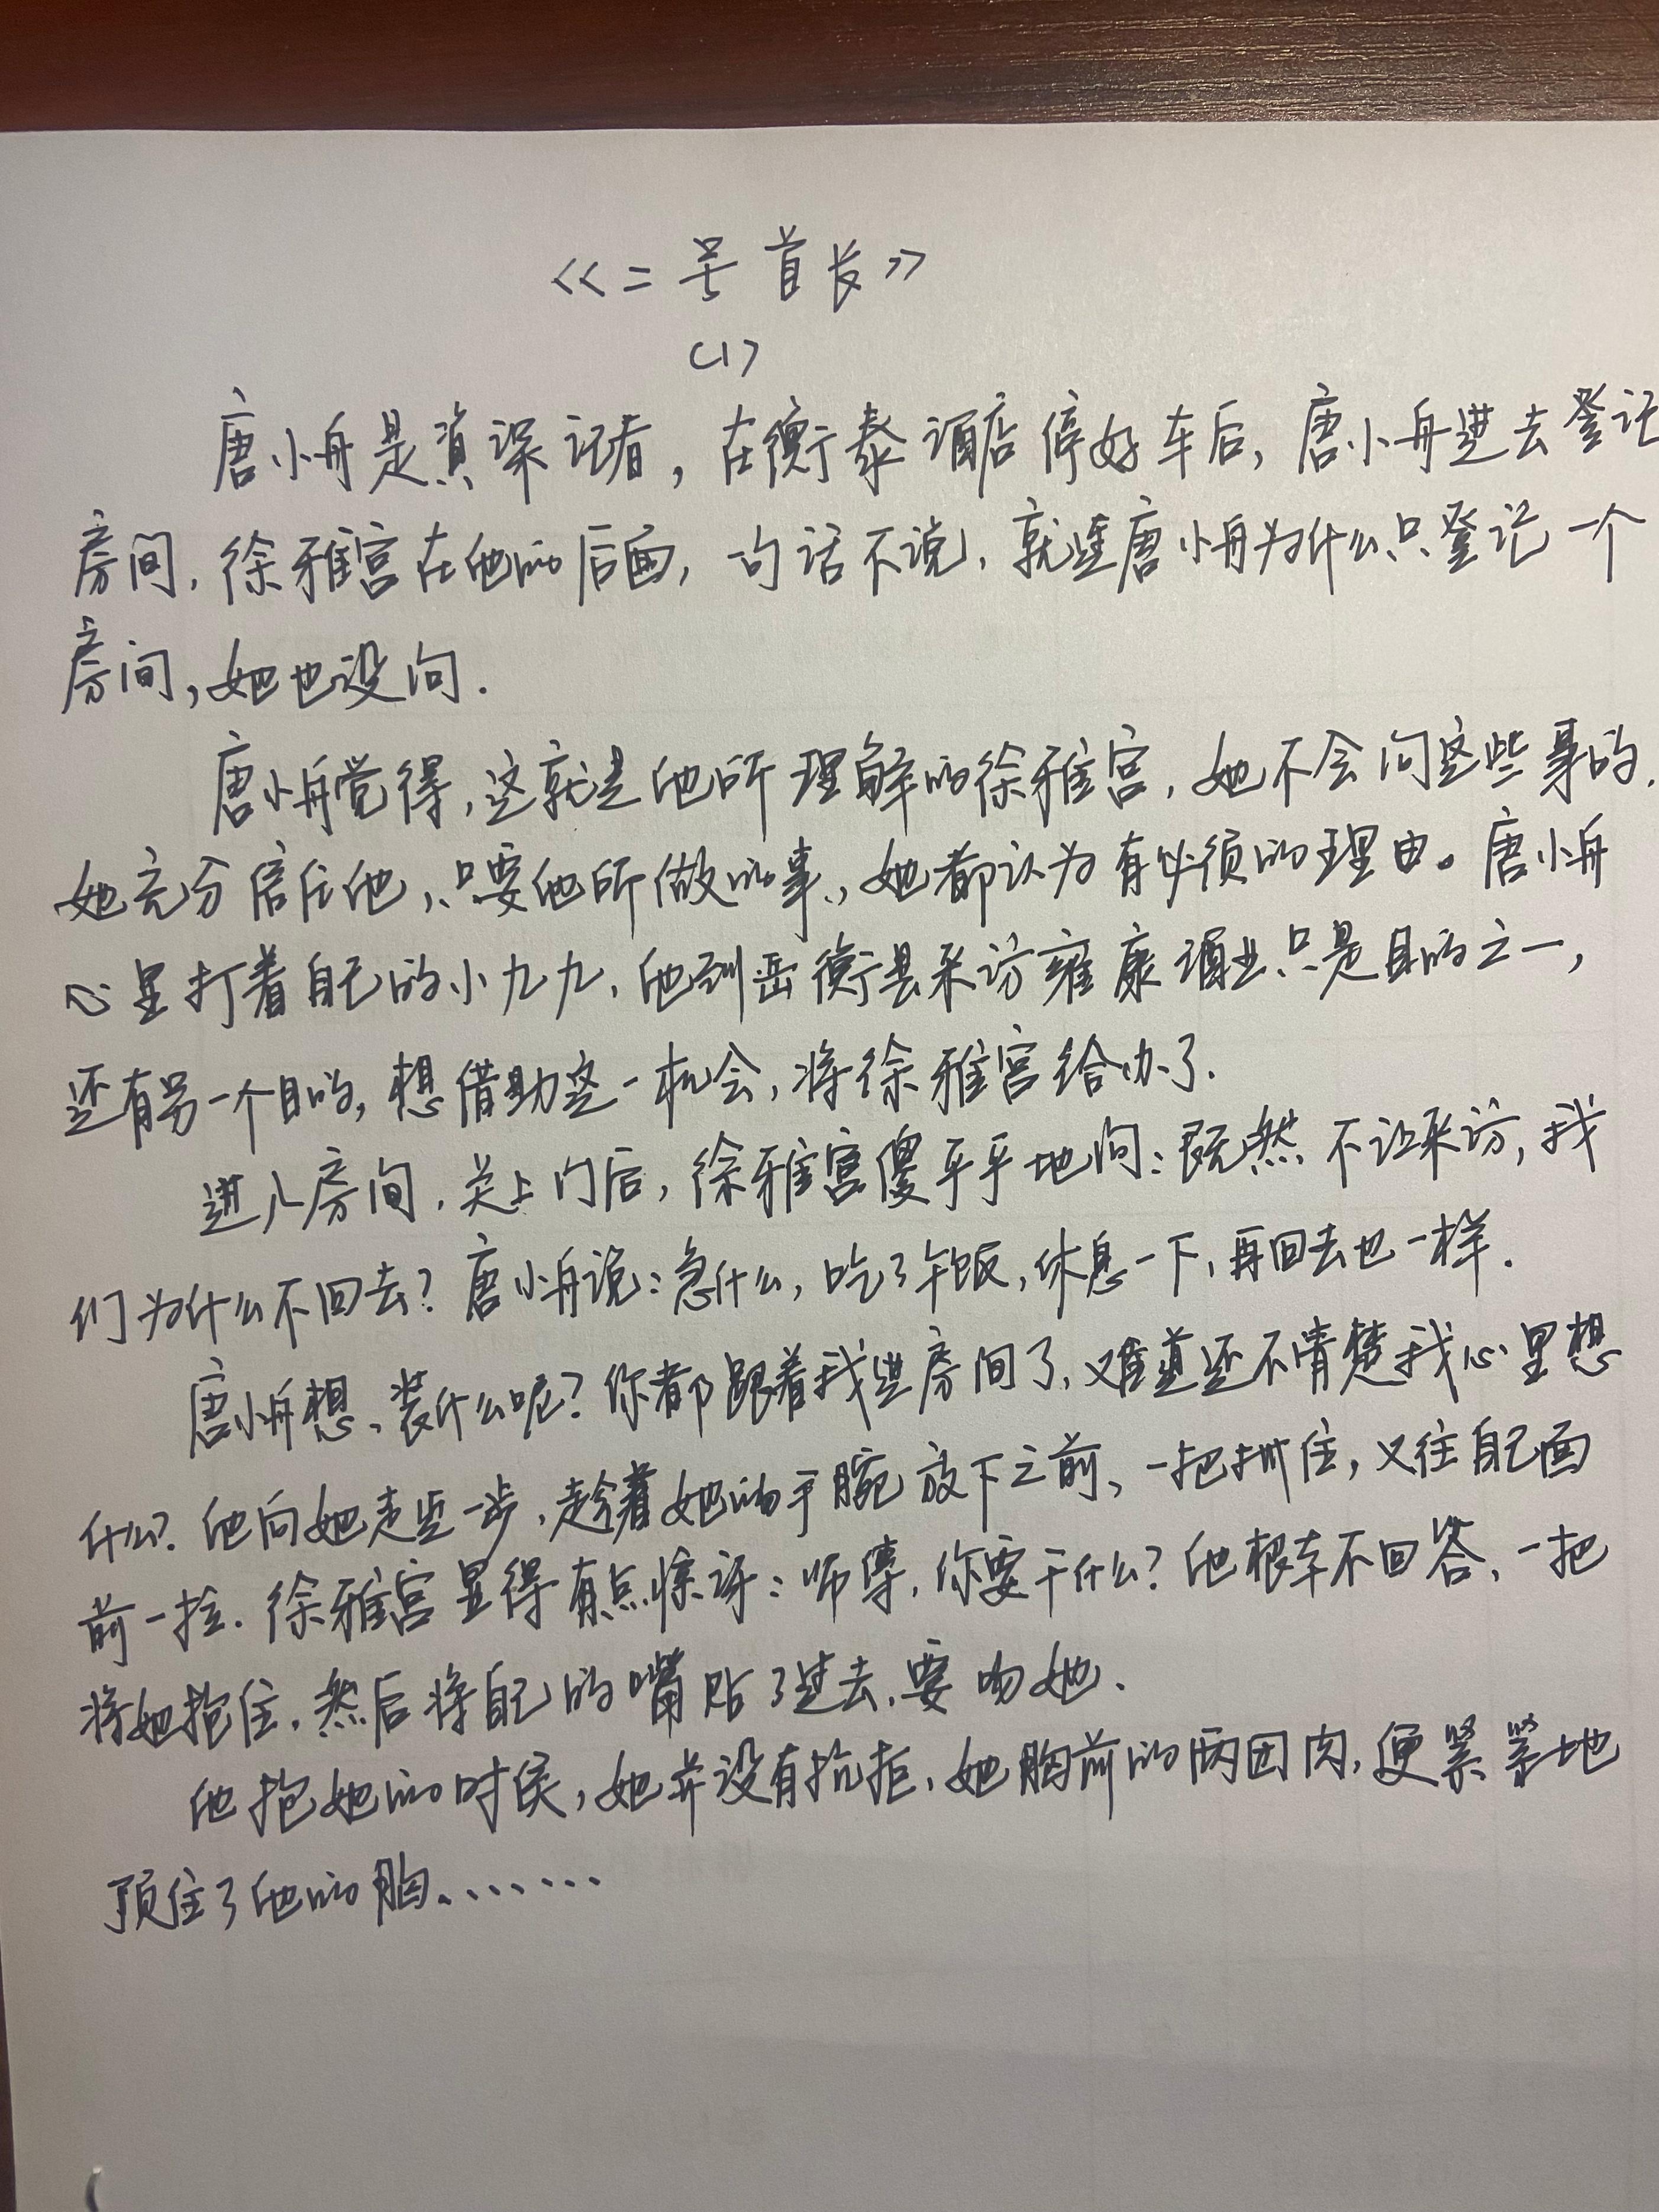 《二号首长》
(1)
唐小舟是资深记者,在衡泰酒店停好车后,唐小舟进去登记
房间,徐雅宫在他的后面,一句话不说,就连唐小舟为什么只登记一个
房间,她也没问.
唐小舟觉得,这就是他所理解的徐雅宫,她不会问这些事的.
她充分信任他,只要他所做的事,她都认为有必须的理由。唐小舟
心里打着自己的小九九,他到岳衡县采访雍康酒业只是目的之一,
还有另一个目的,想借助这一机会,将徐雅宫给办了.
进入房间,关上门后,徐雅宫傻乎乎地问:既然不让采访,我
们为什么不回去?唐小舟说:急什么,吃了午饭,休息一下,再回去也一样.
唐小舟想,装什么呢?你都跟着我进房间了,难道还不清楚我心里想
什么?他向她走近一步,趁着她的手腕放下之前,一把抓住,又往自己面
前一拉.徐雅宫显得有点惊讶:师傅,你要干什么?他根本不回答,一把
将她抱住,然后将自己的嘴贴了过去,要吻她.
他抱她的时候,她并没有抗拒,她胸前的两团肉,便紧紧地
顶住了他的胸.......